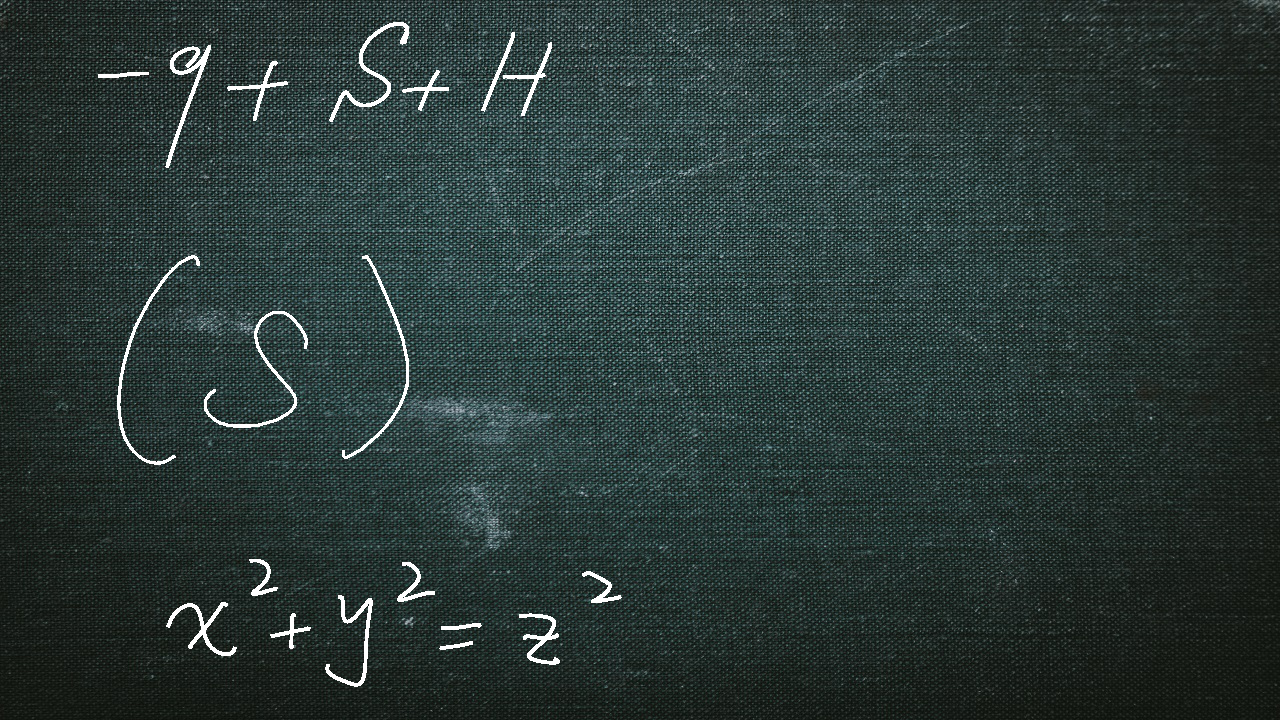 -q + S + H
(S)
x² + y² = z²